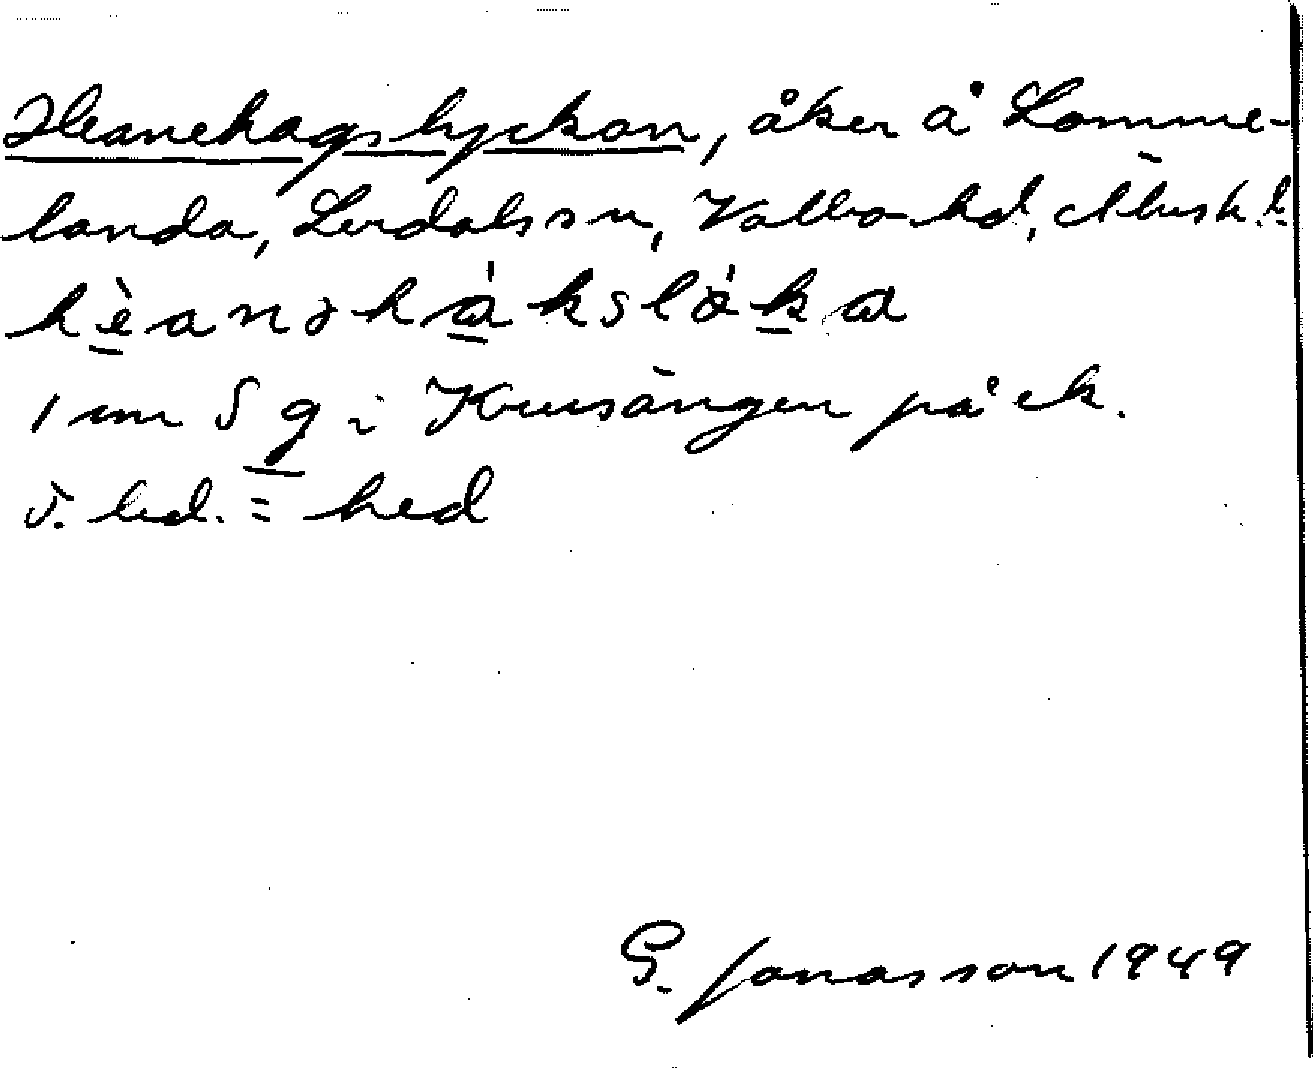 Heanehagslyckan, åker å Lomme-
landa, Lerdals sn, Valbo hd, Älvsb. l.
hèanəhàkslåka
1 mm S g i Krusängen på ek.
v. led. = hed
G. Jonasson 1949